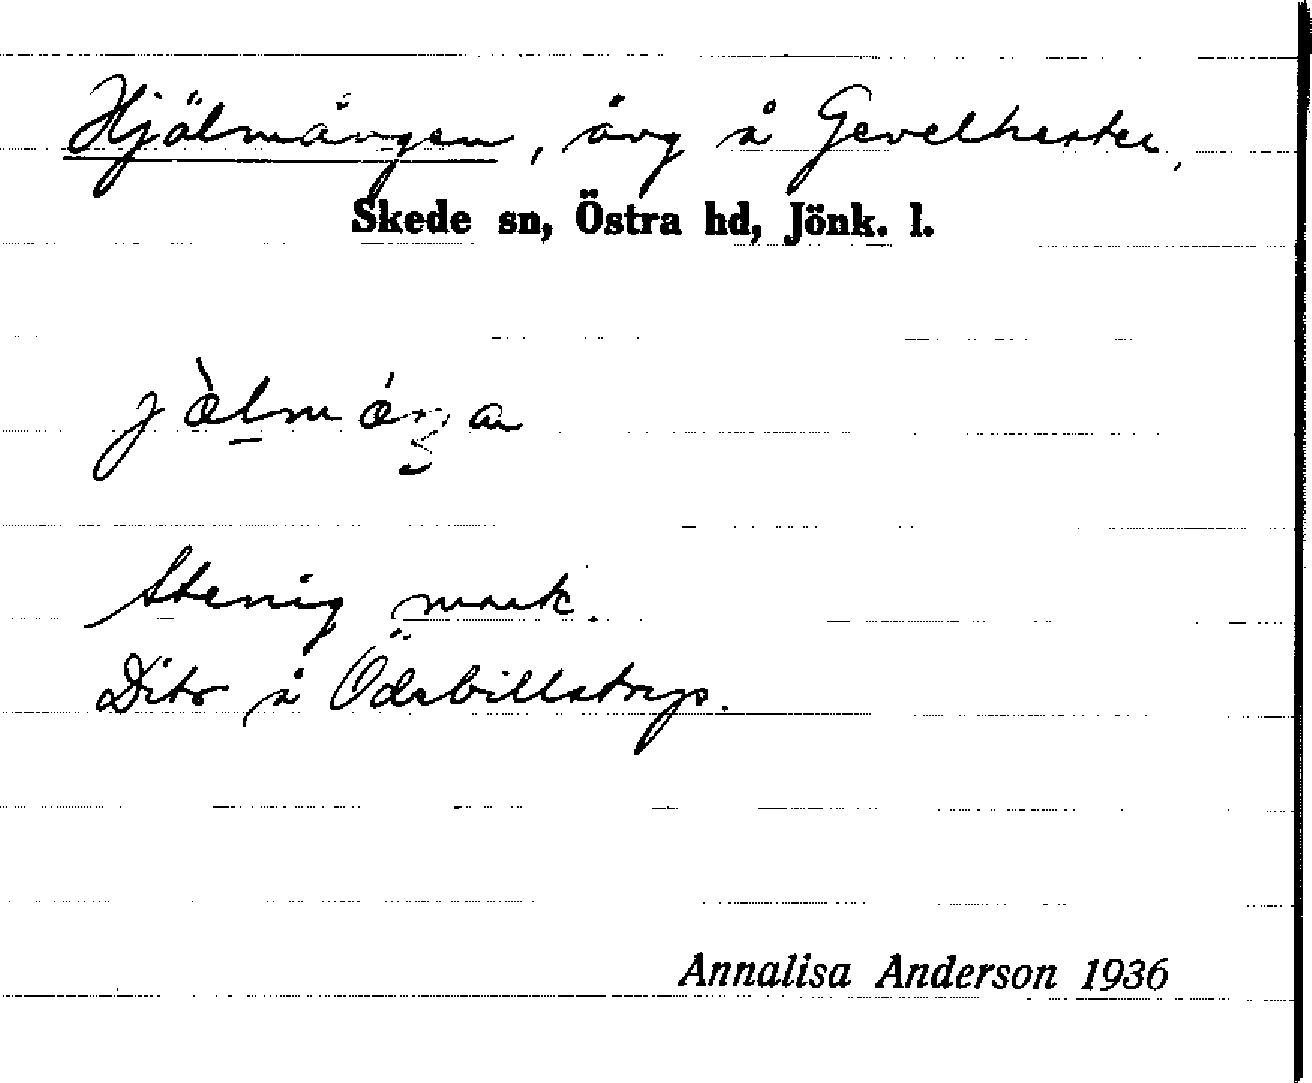 Hjälmången, äng å Gevelhester,
Skede sn, Östra hd, Jönk. l.
Stenig mark.
Dito å Ödebillstorp.
Annalisa Anderson 1936